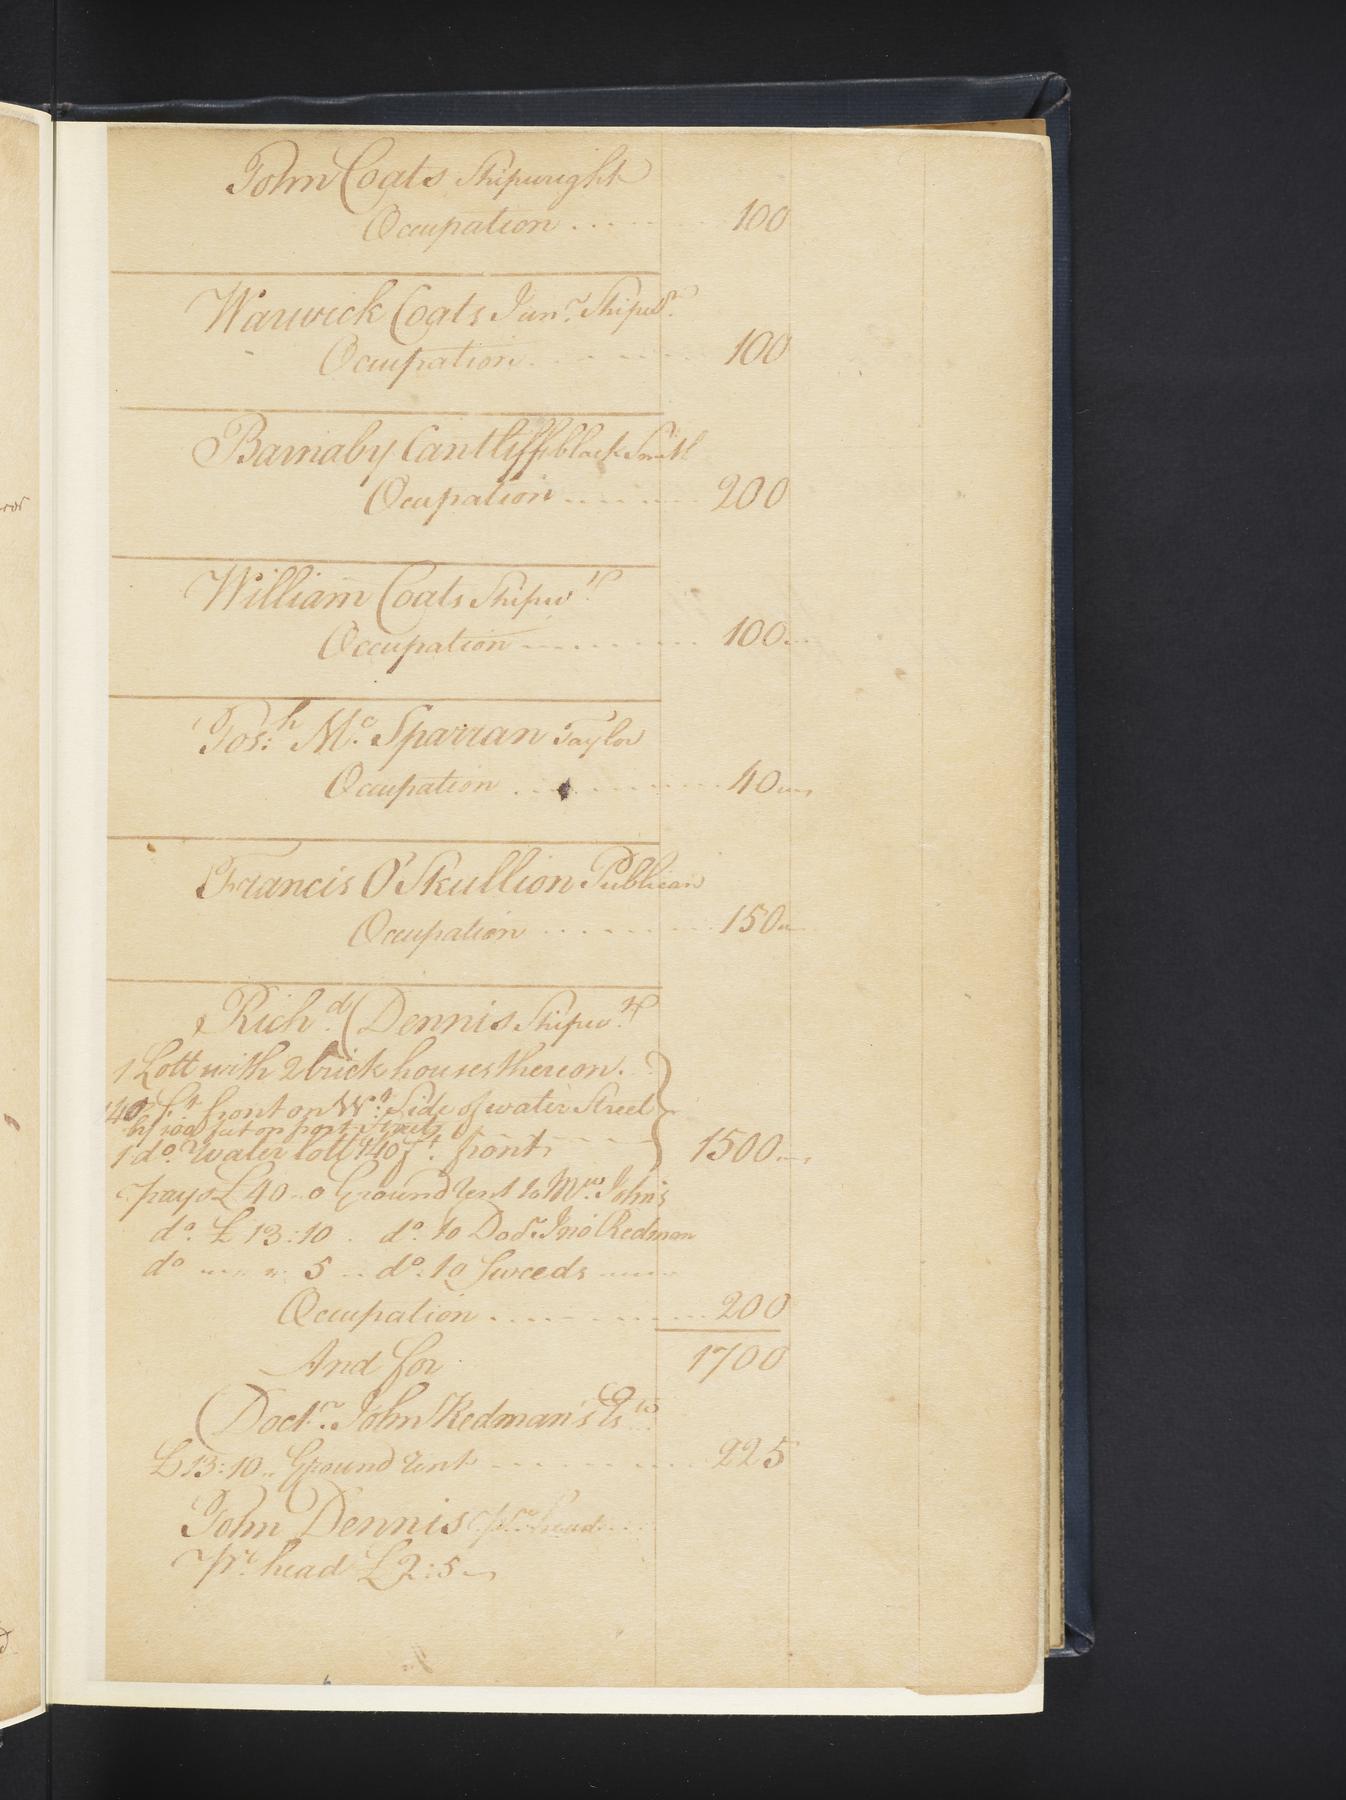 John Coats Shipwright
Occupation ...... 100
Warwick Coats Junr. Shipwt.
Occupation ...... 100
Barnaby Cantliff black Smith
Ocupation ...... 200
William Coats Shipwt.
Occupation ...... 100
Josh: Mc. Sparran Taylor
Occupation ...... 40
Francis O'Skullion Publican
Occupation ...... 150
Richd. Dennis Shipwt.
1 Lott with 2 brick houses thereon.
140 ft front on Wt. Side of water Street
by 100 feet on front Street
1 do. Water lott 140 ft. front 1500
pays £ 40..0 Ground Rent to Mrs. John's
do. £ 13:10. do. to Docr. Jno Redman
do ...... 5 .. do. to Sweeds
Occupation ...... 200
And for 1700
Doctr. John Redman's
£ 13:10.. Ground Rent ...... 225
John Dennis pr. head
pr. head £ 2:5